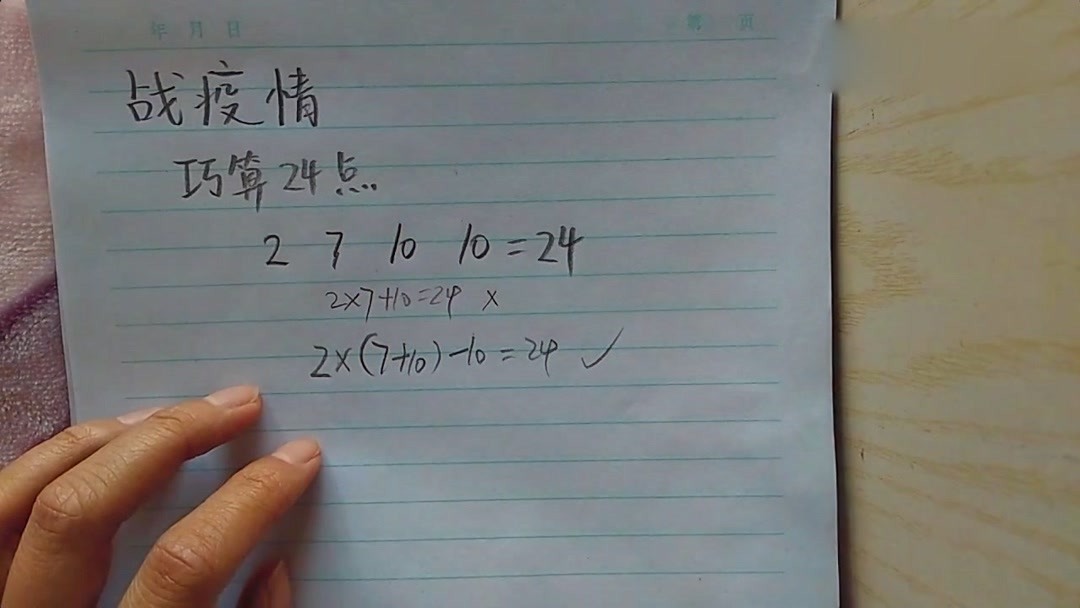 年 月 日 第 页
战疫情
巧算24点
2 7 10 10=24
2×7+10=24 ×
2×(7+10)-10=24 ✓